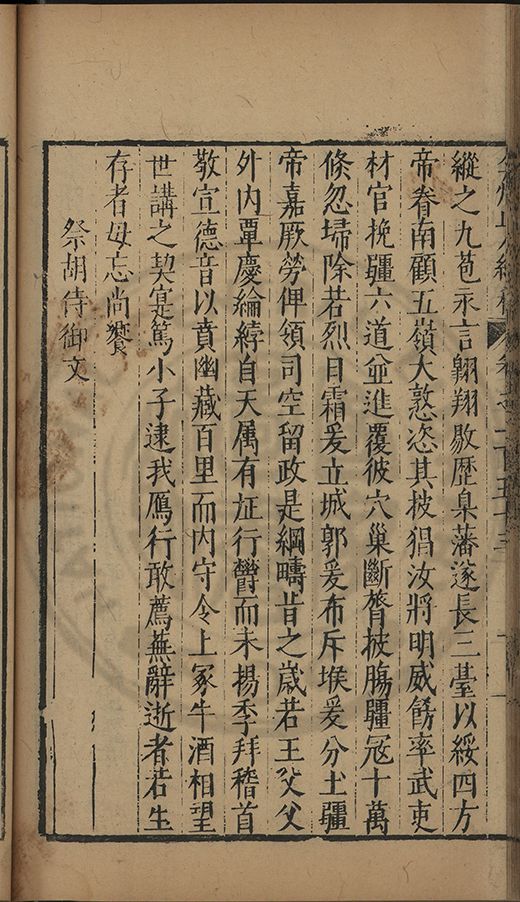 縱之九苞永言翺翔敭歷臬藩遂長三臺以綏四方
帝眷南顧五嶺大憝恣其披猖汝將明威飭率武吏
材官挽彊六道並進覆彼穴巢斷膂披腸彊寇十萬
倏忽埽除若烈日霜爰立城郭爰布斥堠爰分土疆
帝嘉厥勞俾領司空留政是綱疇昔之歲若王父父
外內覃慶綸綍自天厲有征行欝而未揚季拜稽首
敬宣德音以賁幽藏百里而內守令上冢牛酒相望
世講之契寔篤小子逮我鴈行敢薦蕪辭逝者若生
存者毋忘尚饗
祭胡侍御文